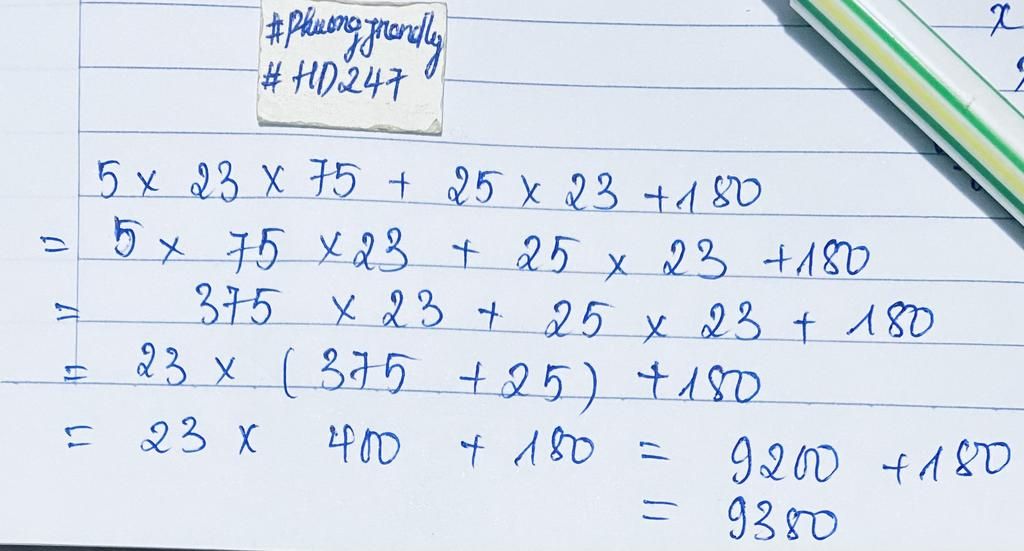 #Phuongfrandly
# HD247
x
5 x 23 x 75 + 25 x 23 +180
= 5 x 75 x 23 + 25 x 23 +180
= 375 x 23 + 25 x 23 + 180
= 23 x ( 375 +25) +180
= 23 x 400 + 180 = 9200 +180
= 9380